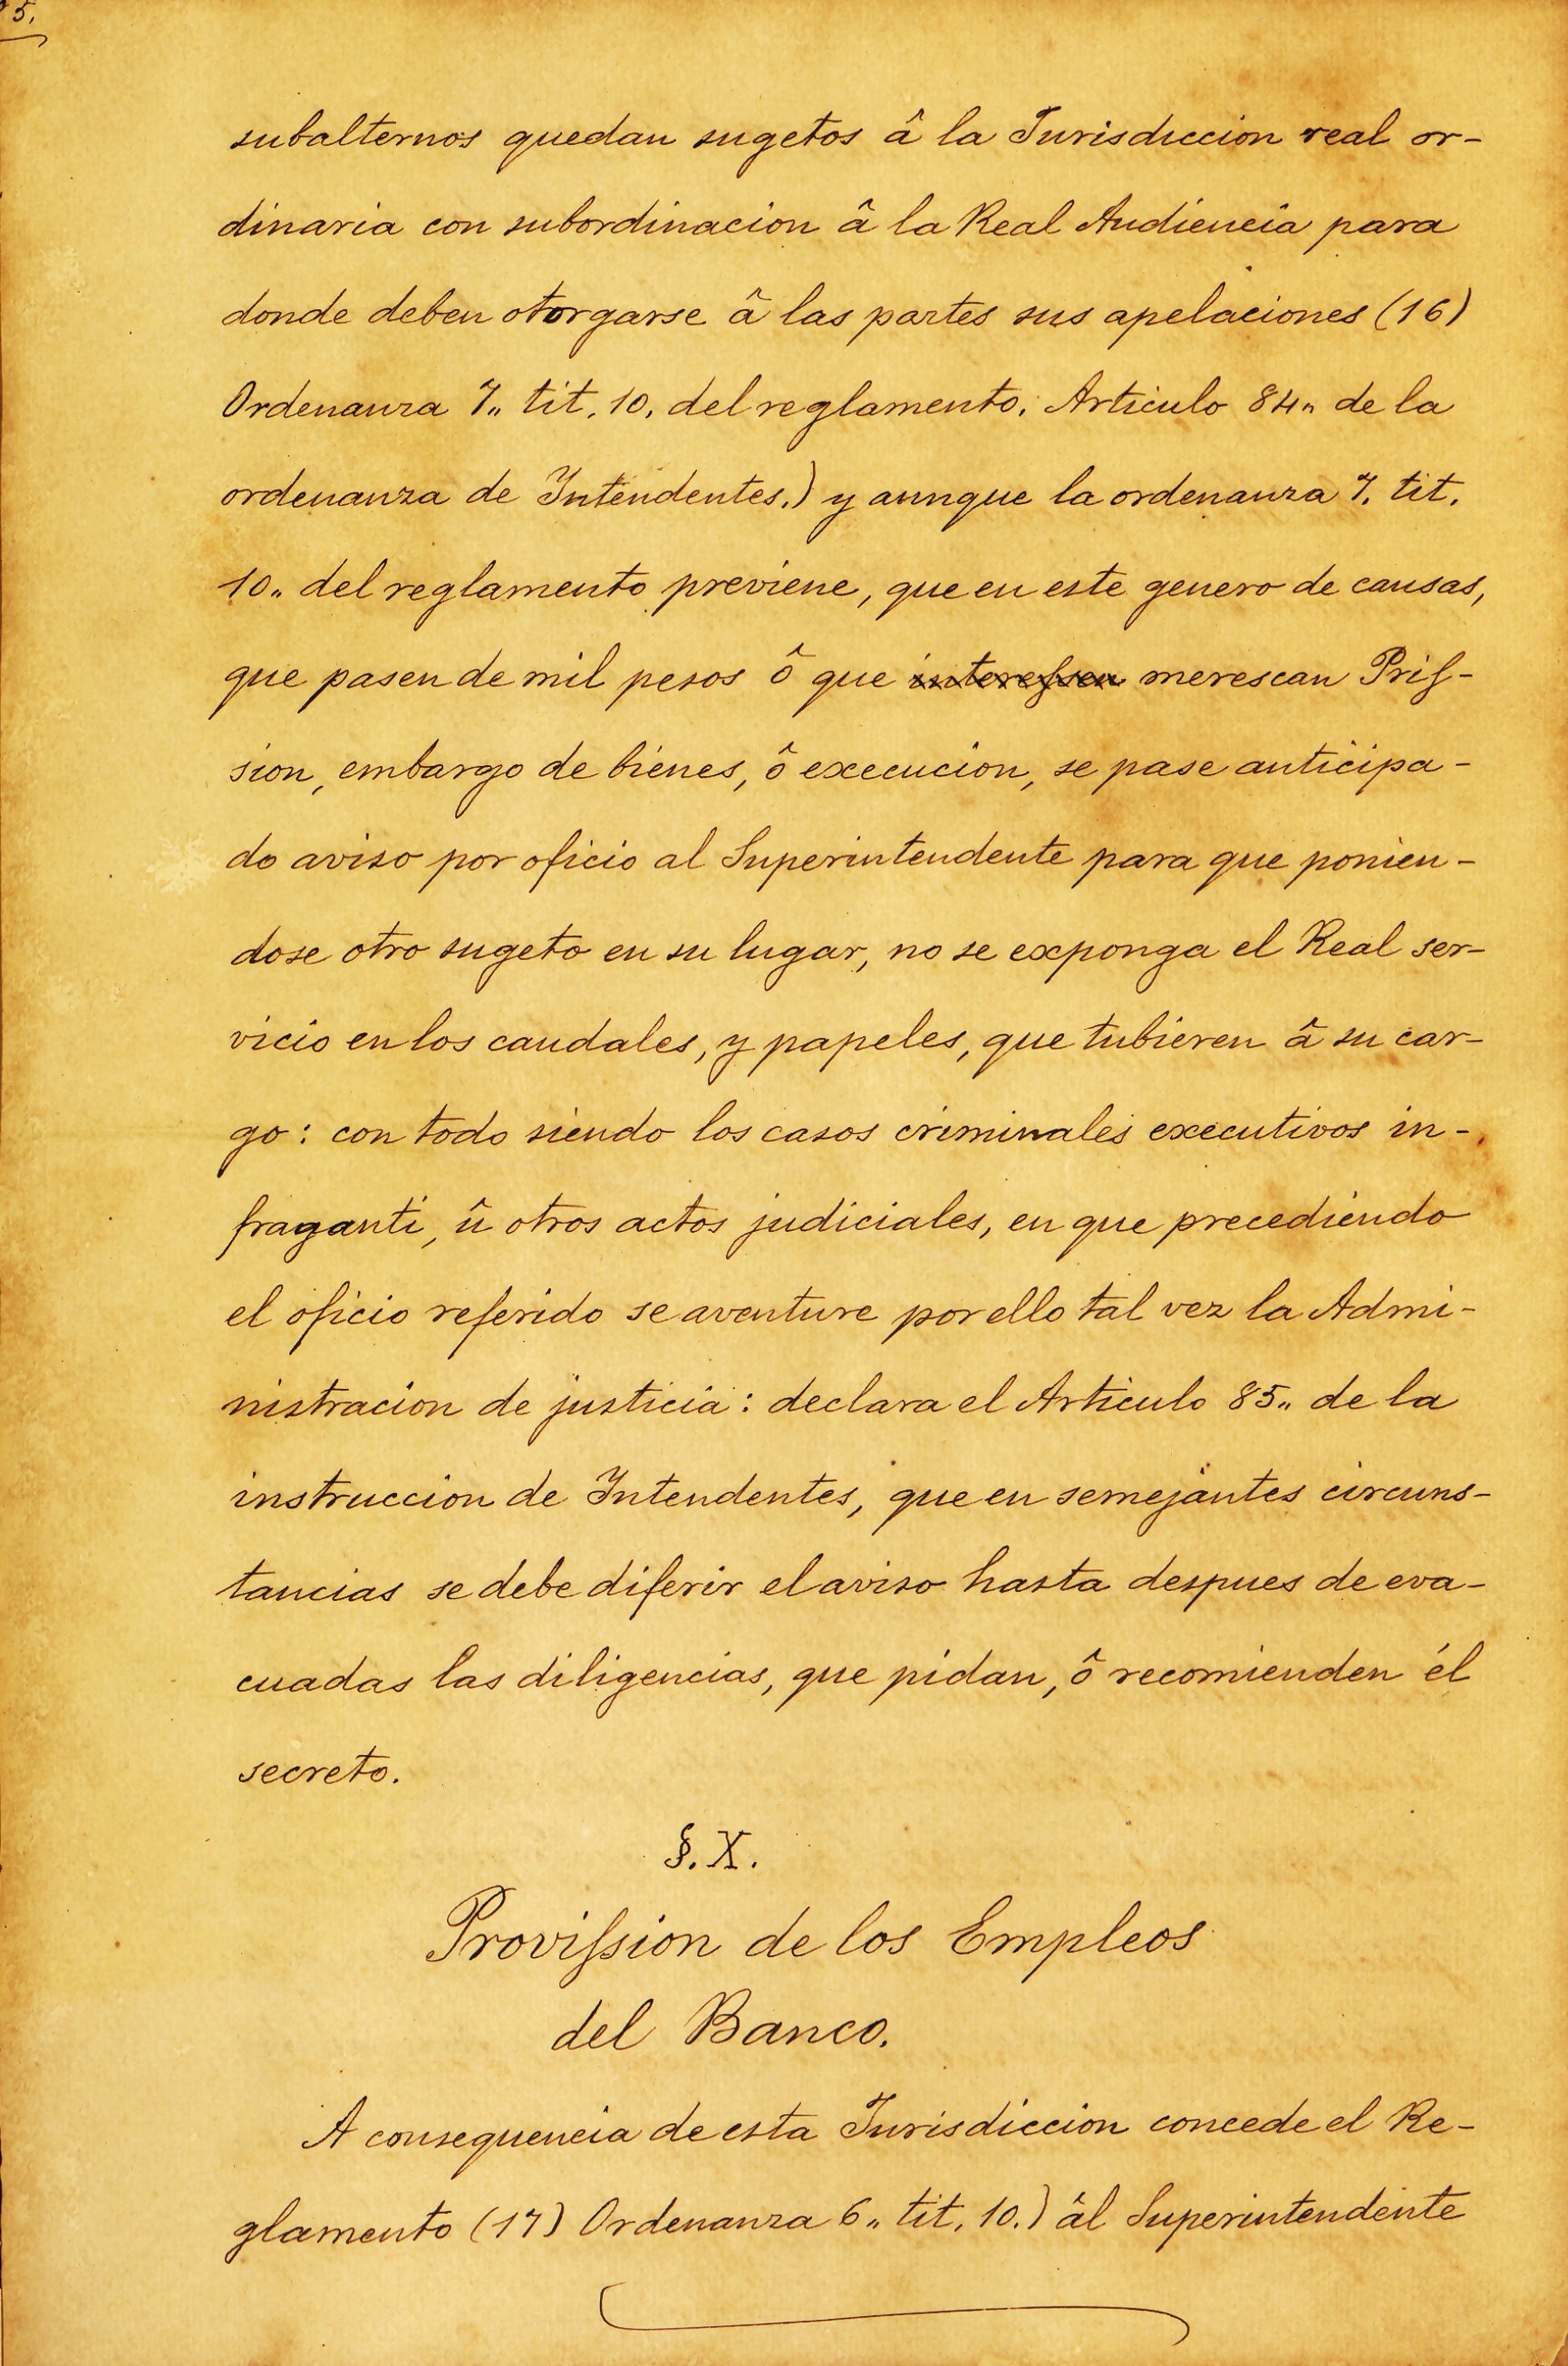 5.
subalternos quedan sugetos â la Jurisdiccion real or-
dinaria con subordinacion â la Real Audiencia para
donde deben otorgarse â las partes sus apelaciones (16)
Ordenanza 7„ tit. 10. del reglamento. Articulo 84„ de la
ordenanza de Intendentes.) y aunque la ordenanza 7. tit.
10„ del reglamento previene, que en este genero de causas,
que pasen de mil pesos ô que interesen merescan Priſ-
sion, embargo de bienes, ô execucion, se pase anticipa-
do aviso por oficio al Superintendente para que ponien-
dose otro sugeto en su lugar, no se exponga el Real ser-
vicio en los caudales, y papeles, que tubieren â su car-
go: con todo siendo los casos criminales executivos in-
fraganti, û otros actos judiciales, en que precediendo
el oficio referido se aventure por ello tal vez la Admi-
nistracion de justicia: declara el Articulo 85„ de la
instruccion de Intendentes, que en semejantes circuns-
tancias se debe diferir el aviso hasta despues de eva-
cuadas las diligencias, que pidan, ô recomienden él
secreto.
§. X.
Proviſsion de los Empleos
del Banco.
A consequencia de esta Jurisdiccion concede el Re-
glamento (17) Ordenanza 6„ tit. 10.) âl Superintendente